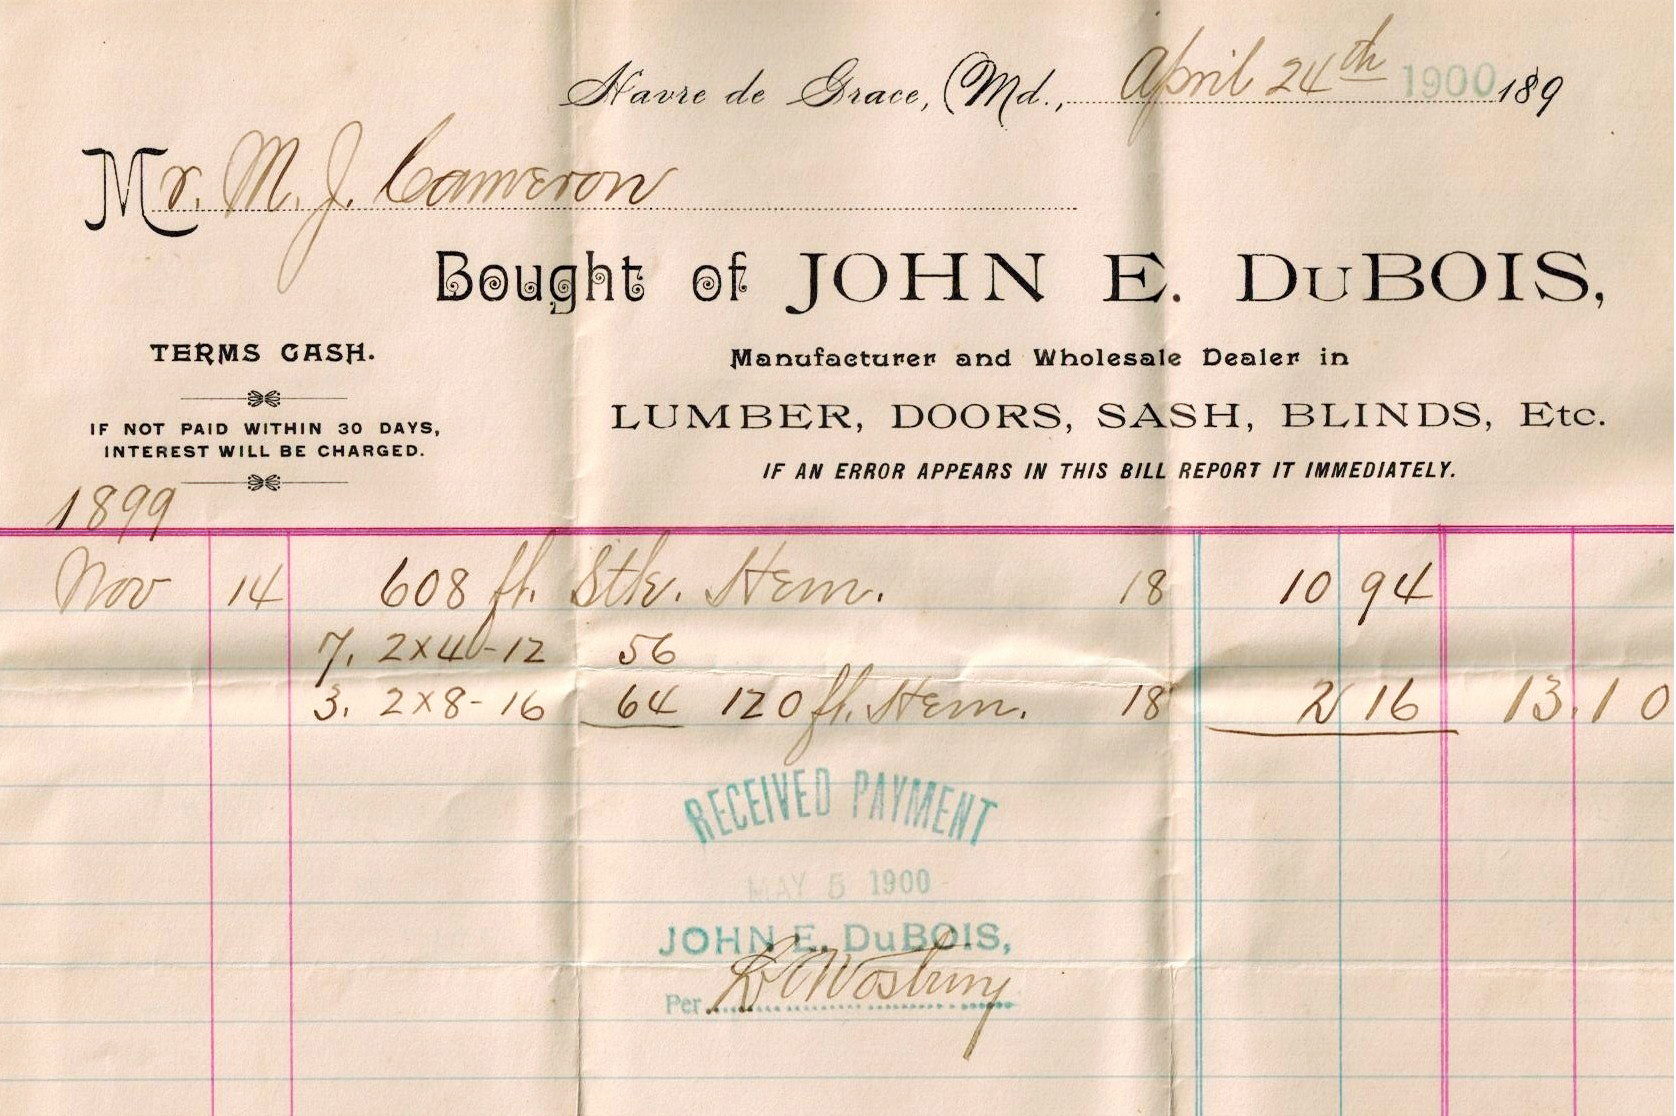 Havre de Grace, Md., April 24th 1900 189
Mr. M. J. Cameron
Bought of JOHN E. DuBOIS,
TERMS CASH.
Manufacturer and Wholesale Dealer in
LUMBER, DOORS, SASH, BLINDS, Etc.
IF NOT PAID WITHIN 30 DAYS,
INTEREST WILL BE CHARGED.
IF AN ERROR APPEARS IN THIS BILL REPORT IT IMMEDIATELY.
1899
Nov 14 608 ft. Stk. Hem. 18 10 94
7. 2x4-12 56
3. 2x8-16 64 120 ft. Hem. 18 2 16 13.10
RECEIVED PAYMENT
MAY 5 1900
JOHN E. DuBOIS,
Per